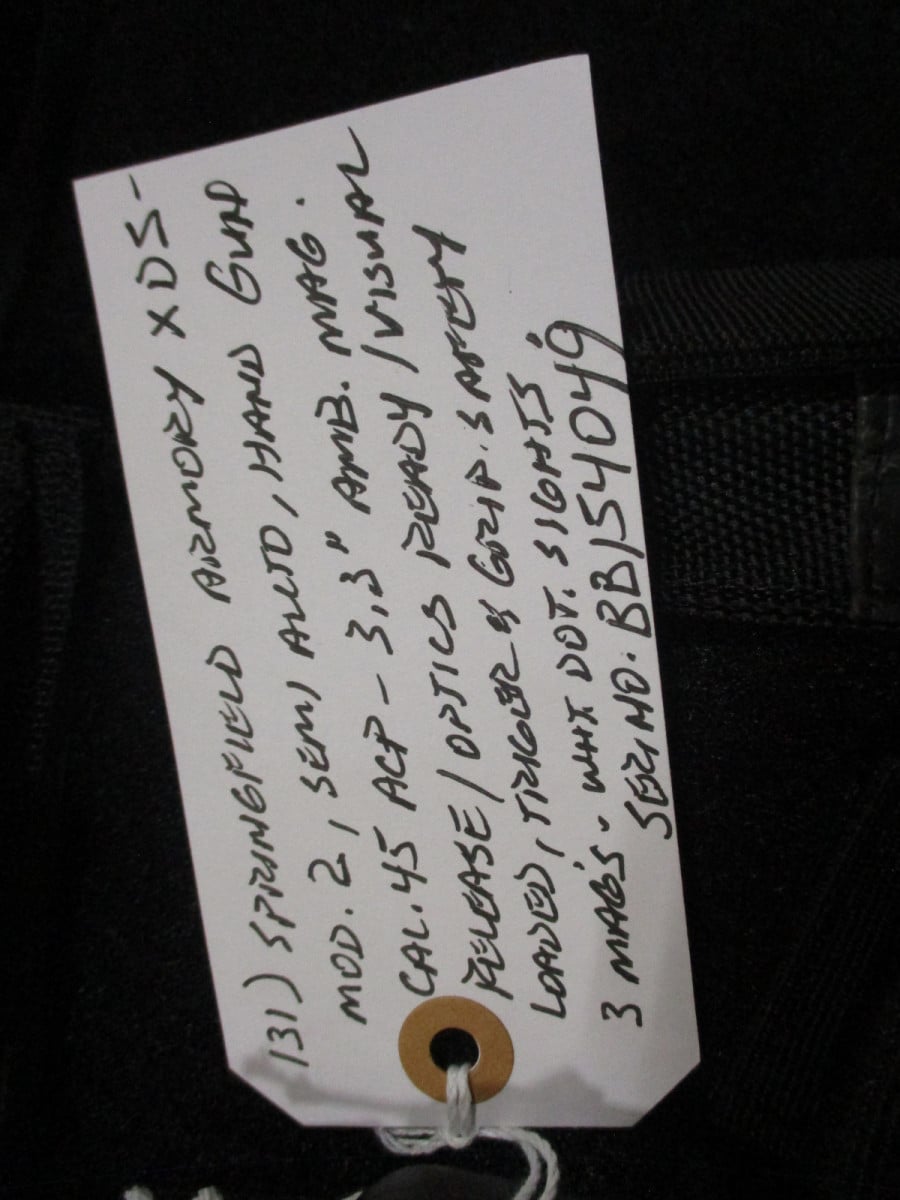 131) SPRINGFIELD ARMORY XDS-
MOD. 2, SEMI AUTO, HAND GUN
CAL. 45 ACP - 3.3" AMB. MAG.
RELEASE / OPTICS READY / VISUAL
LOADED, TRIGGER & GRIP. SAFETY
3 MAG'S - WHT. DOT. SIGHTS'
SER. NO. BB154049